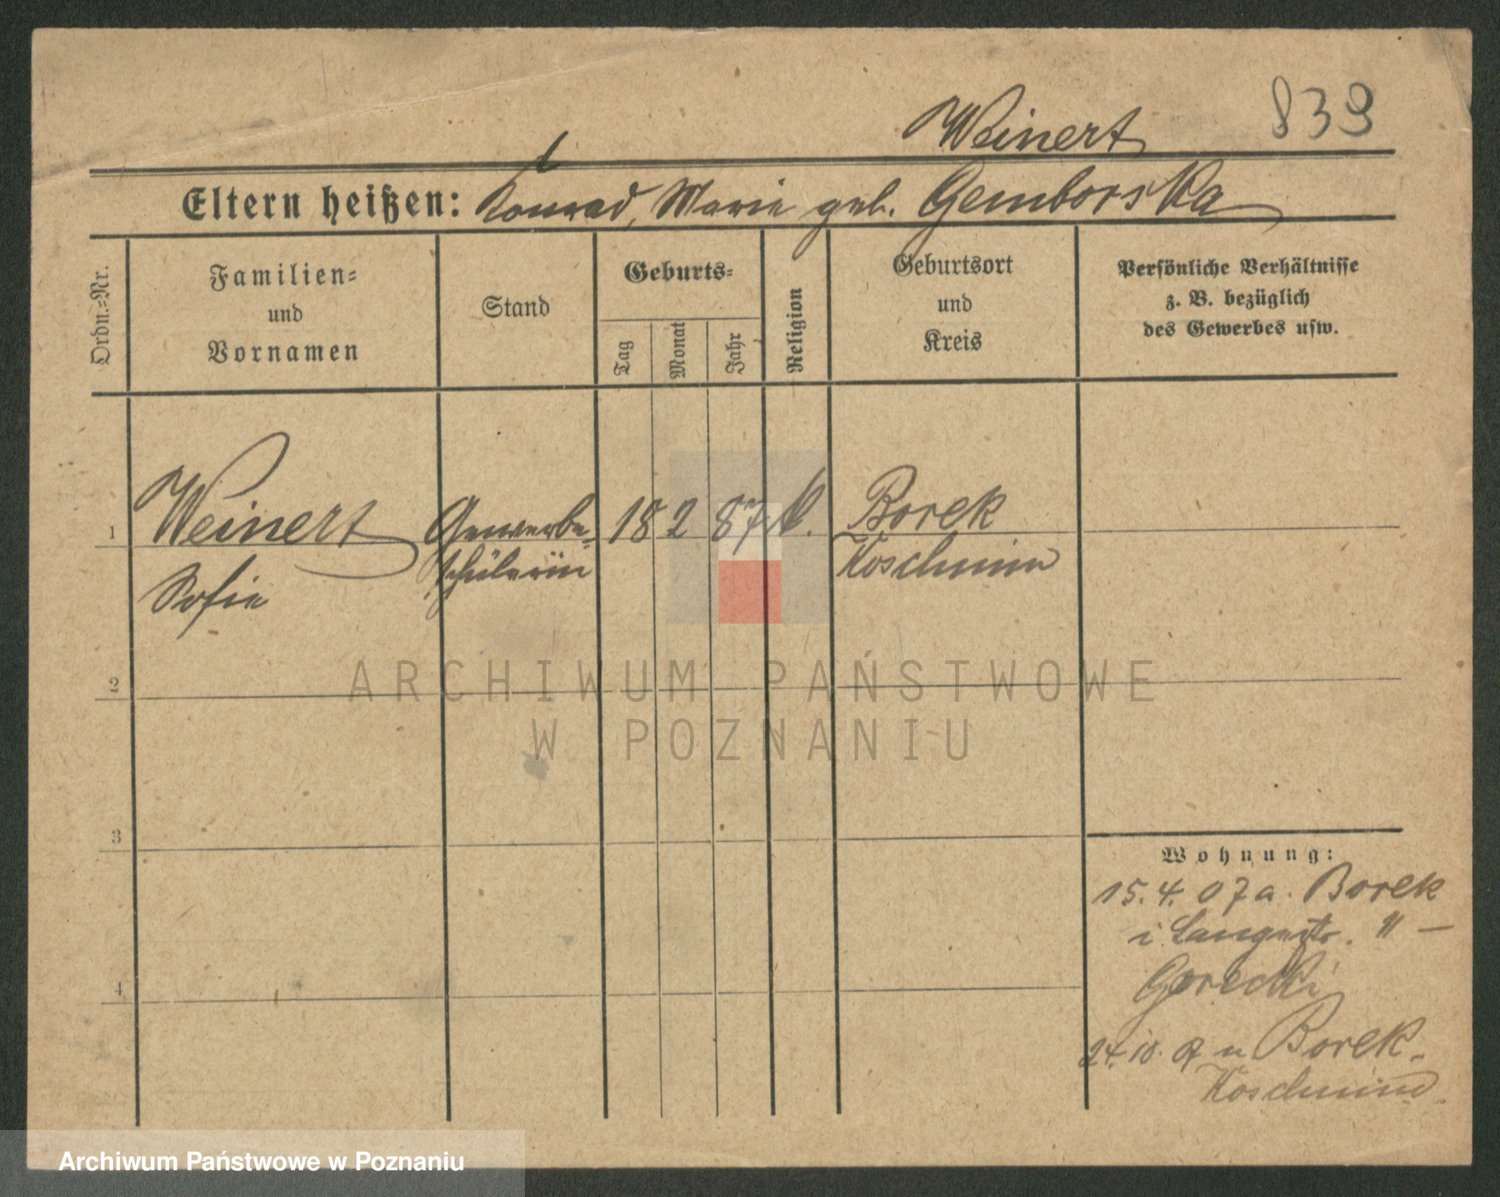 839
Weinert
Eltern heißen: Konrad, Marie geb. Gemborska
Ordn.=Nr.
Familien=
und
Vornamen
Stand
Geburts=
Tag
Monat
Jahr
Religion
Geburtsort
und
Kreis
Persönliche Verhältnisse
z. B. bezüglich
des Gewerbes usw.
1
Weinert
Sofie
Gewerbe=
schülerin
18 2 87 k.
Borek
Koschmin
2
3
4
Wohnung:
15. 4. 07 a. Borek
i Langestr. " —
Gorecki
24. 10. n Borek.
Koschmin.
ARCHIWUM PAŃSTWOWE
W POZNANIU
Archiwum Państwowe w Poznaniu